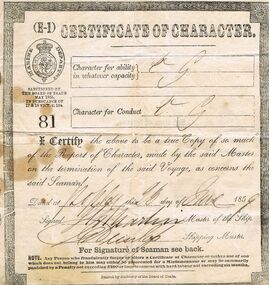 (E-1) CERTIFICATE OF CHARACTER.
SANCTIONED BY
THE BOARD OF TRADE
MAY 1855,
IN PURSUANCE OF
17 & 18 VICT. C. 104.
81
Character for ability
in whatever capacity
V G
Character for Conduct
V G
I Certify the above to be a true Copy of so much
of the Report of Character, made by the said Master
on the termination of the said Voyage, as concerns the
said Seaman.
Dated at this day of 186
Signed Master of the Ship.
Shipping Master
For Signature of Seaman see back.
NOTE. Any Person who fraudulently forges or alters a Certificate of Character or makes use of one
which does not belong to him may either be prosecuted for a Misdemeanor or may be summarily
punished by a Penalty not exceeding or imprisonment with hard labour not exceeding six months.
Issued by Authority of the Board of Trade.